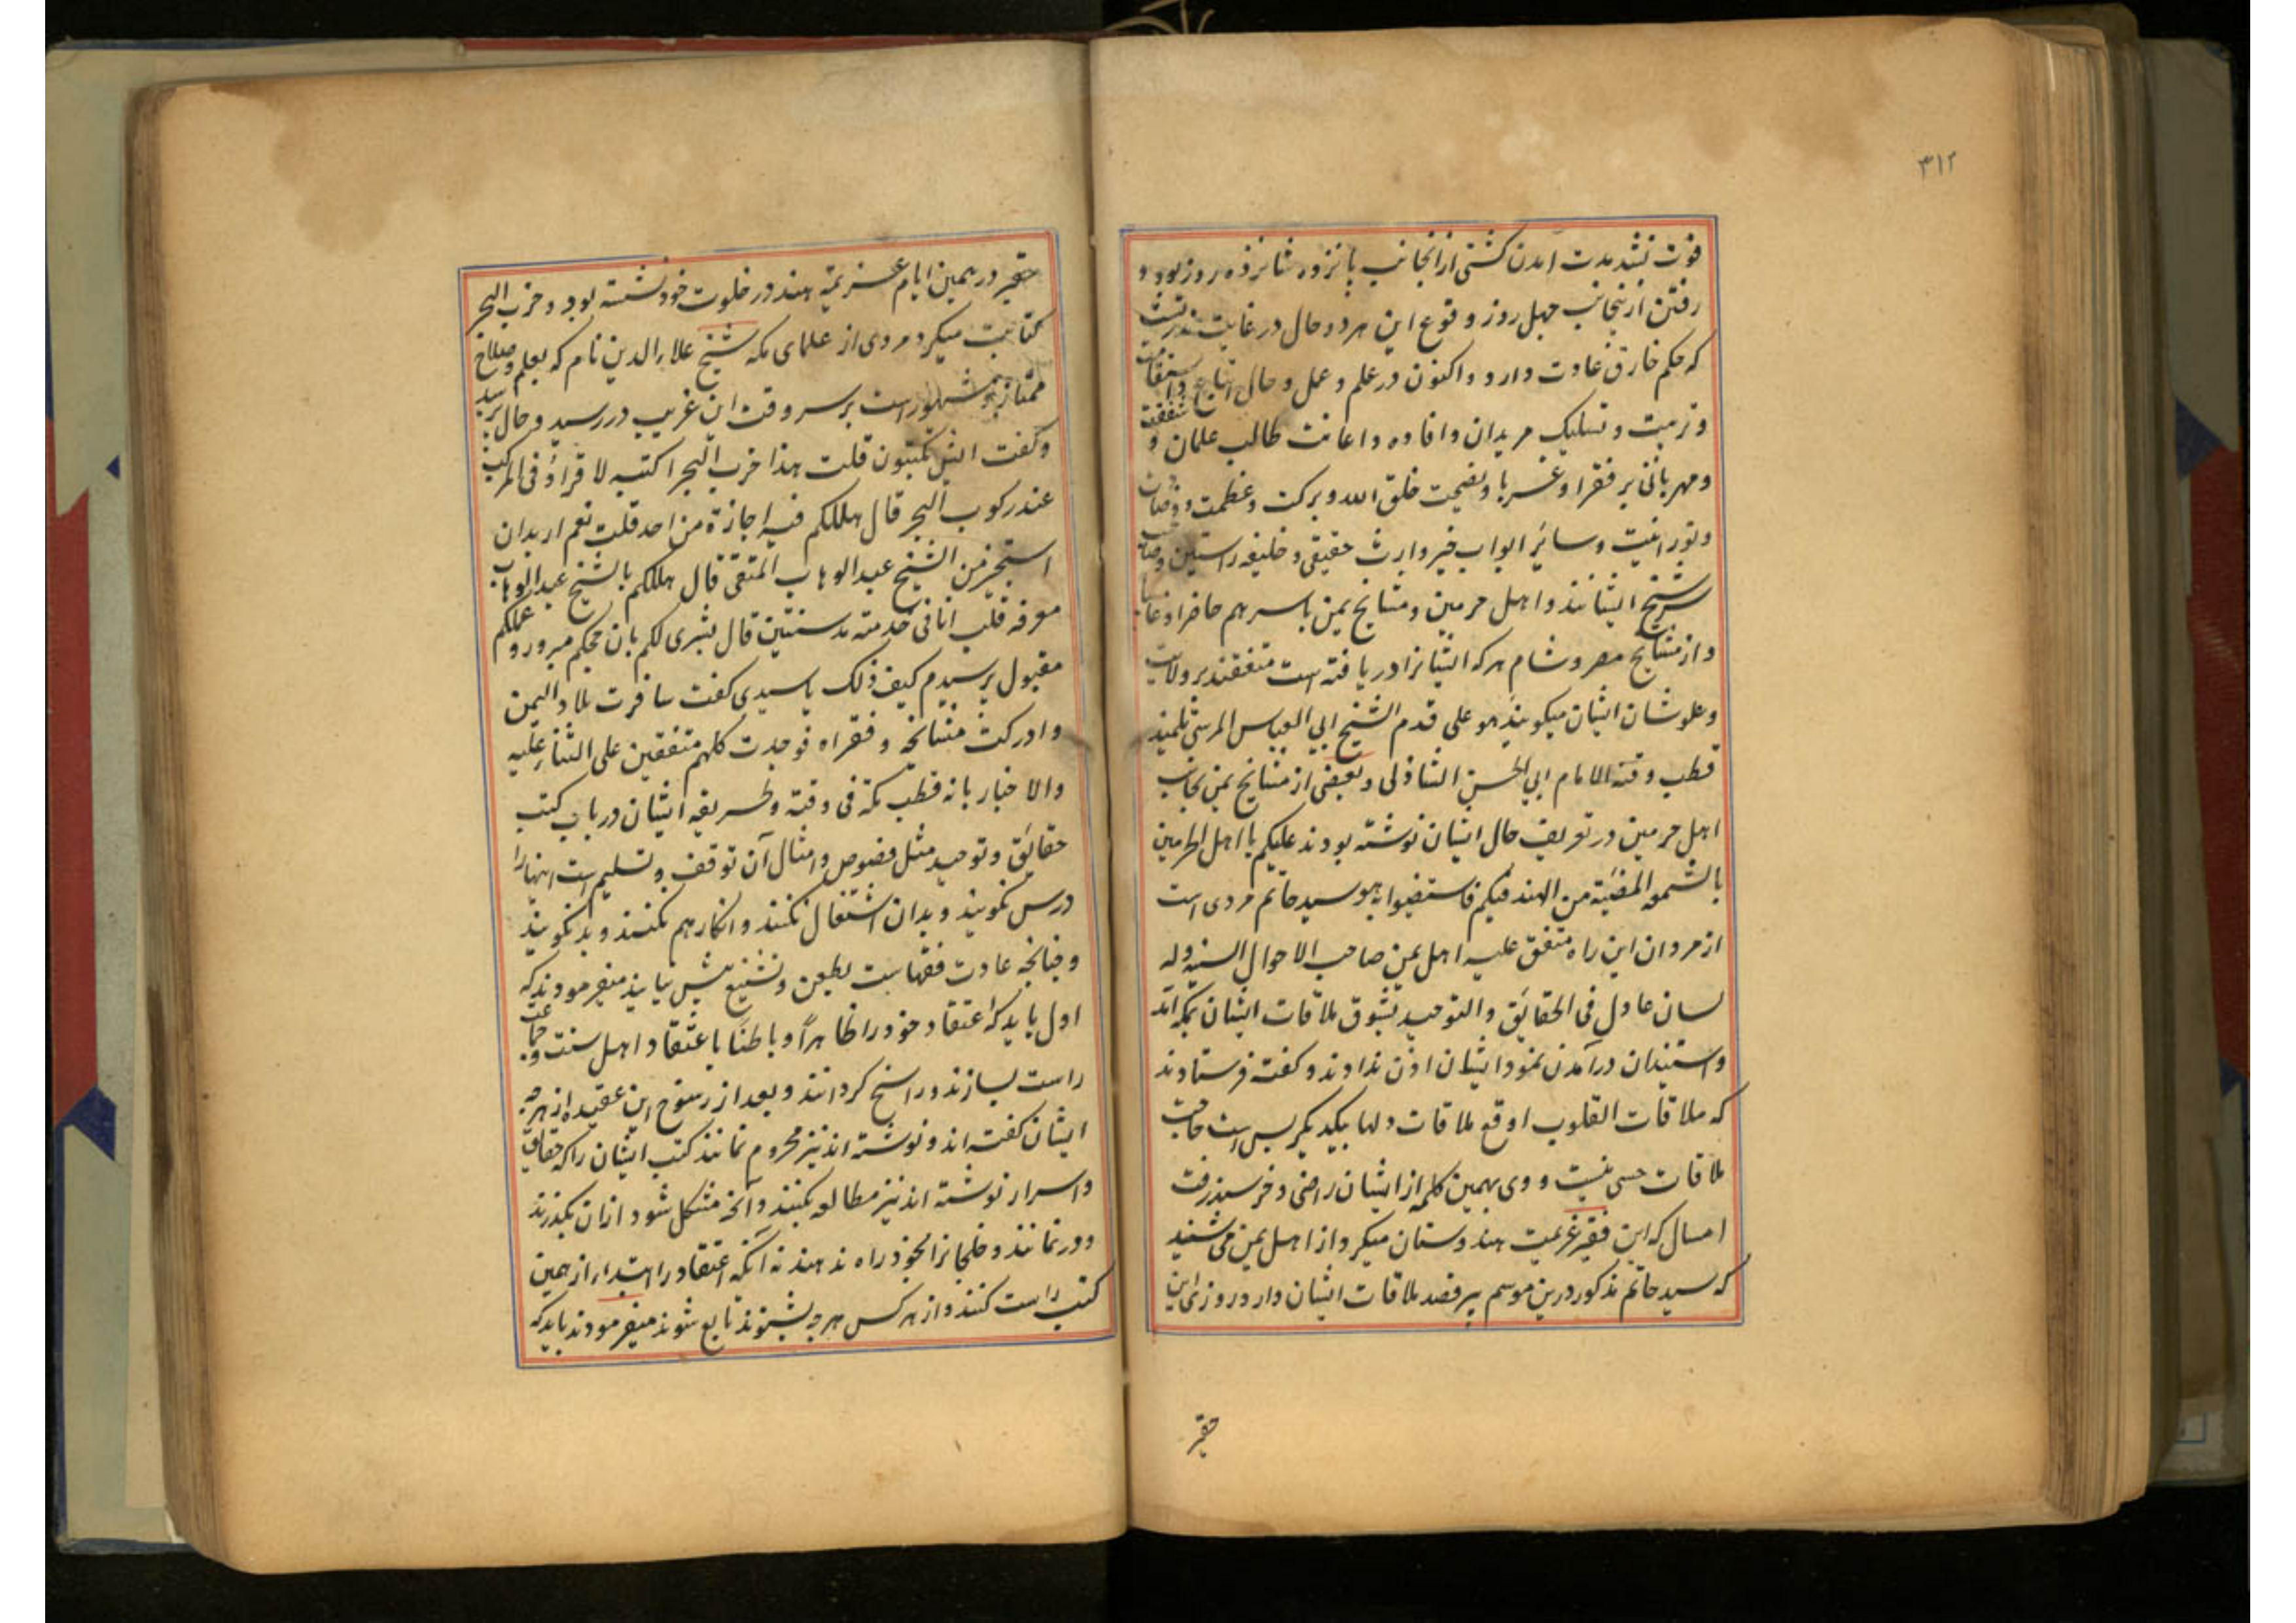 ۳۱۲
فوت نشد مدت آمدن کشتی ازانجانب پانزده شانزده روز بود و
رفتن ازینجانب چهل روز و وقوع این هر دو حال در غایت ندرتست
که حکم خارق عادت دارد و اکنون در علم و عمل و حال و اتباع و استقامت
و تربیت و تسلیک مریدان و افاده و اعانت طالب علمان و شفقت
و مهربانی بر فقرا و غربا و نصیحت خلق الله و برکت و عظمت و
و نورانیت و سائر ابواب خیر وارث حقیقی و خلیفه راستین و صاحب
سر شیخ ایشانند و اهل حرمین و مشایخ یمن باسرهم حاضرا و غائبا
و از مشایخ مصر و شام هر که ایشانرا دریافته است متفقند بر ولایت
و علو شان ایشان میکویند هو علی قدم الشیخ ابی العباس المرسی تلمیذ
قطب وقته الامام ابی الحسن الشاذلی و بعضی از مشایخ یمن بجانب
اهل حرمین در تعریف حال ایشان نوشته بودند علیکم یا اهل الحرمین
بالشمعه المضیئة من الهند فیکم فاستضیوا به و سید حاتم مردی است
از مردان این راه متفق علیه اهل یمن صاحب الاحوال السنیه و له
لسان عادل فی الحقائق والتوحید بشوق ملاقات ایشان بمکه آمد
و استیذان درآمدن نمود ایشان اذن ندادند و کفته فرستادند
که ملاقات القلوب اوقع ملاقات دلها بیکدیکر بس است حاجت
ملاقات حسی نیست و وی بهمین کلمه از ایشان راضی و خرسند رفت
امسال که این فقیر عزیمت هندوستان میکرد از اهل یمن می شنید
که سید حاتم مذکور درین موسم بر قصد ملاقات ایشان دارد روزی این
حقیر
حقیر در همین ایام عزیمة هند در خلوت خود نشسته بود و حزب البحر
کتابت میکرد مردی از علمای مکه شیخ علاء الدین نام که بعلم و صلاح
ممتاز و مشهور است بر سر وقت این غریب در رسید و حال پرسید
و کفت ایش تکتبون قلت هذا حزب البحر اکتبه لاقراؤ فی المرکب
عند رکوب البحر قال هل لکم فیه اجازة من احد قلت نعم ارید ان
استجیز من الشیخ عبد الوهاب المتقی قال هل لکم بالشیخ عبد الوهاب
معرفه قلت انا فی خدمته مد سنتین قال بشری لکم بان حجکم مبرور و عملکم
مقبول پرسیدم کیف ذلک یا سیدی کفت سافرت بلاد الیمن
و ادرکت مشایخه و فقراه فوجدت کلهم متفقین علی الثناء علیه
والاخبار بانه قطب مکه فی وقته و طریقه ایشان در باب کتب
حقائق و توحید مثل فصوص و امثال آن توقف و تسلیم است اینها را
درس نکویند و بدان اشتغال نکنند و انکار هم نکنند و بد نکویند
و چنانچه عادت فقهاست بطعن و تشنیع پیش نیایند میفرمودند که
اول باید که اعتقاد خود را ظاهراً و باطنًا باعتقاد اهل سنت و جماعت
راست بسازند و راسخ کردانند و بعد از رسوخ این عقیده از هرچه
ایشان کفته اند و نوشته اند نیز محروم نمانند کتب ایشان را که حقایق
و اسرار نوشته اند نیز مطالعه بکنند و آنچه مشکل شود ازان بکذرند
و در نمانند و خلجانرا بخود راه ندهند نه آنکه اعتقاد را ابتداء از همین
کتب راست کنند و از هر کس هرچه بشنوند تابع شوند میفرمودند باید که